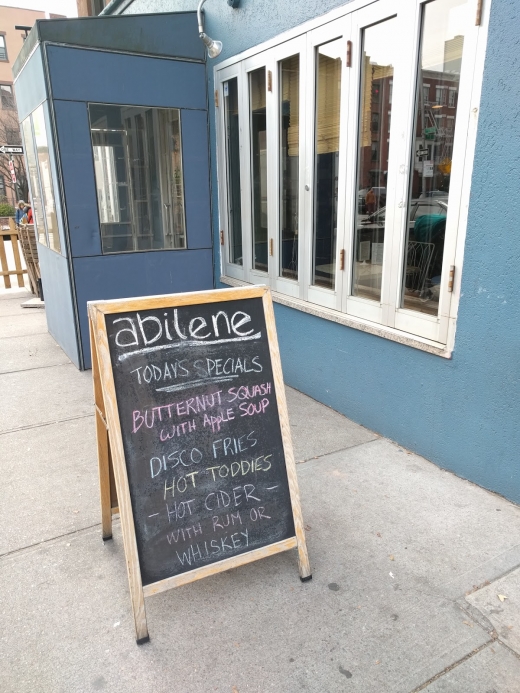 abilene
TODAYS SPECIALS
BUTTERNUT SQUASH
WITH APPLE SOUP
DISCO FRIES
HOT TODDIES
- HOT CIDER -
WITH RUM OR
WHISKEY